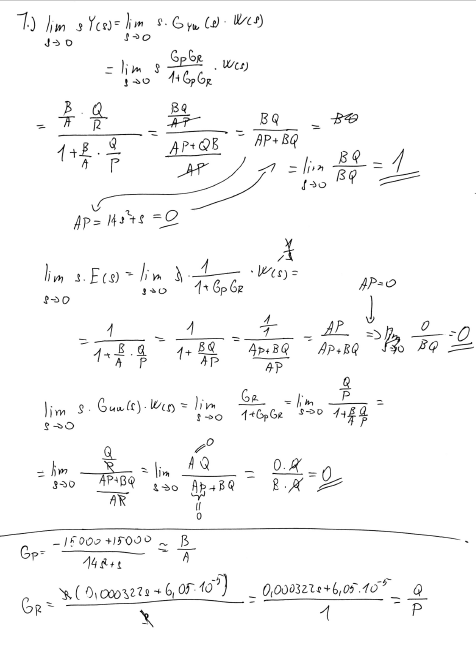 7.) lim s→0 s Y(s) = lim s→0 s · G_yw(s) · W(s)
= lim s→0 s G_P G_R / 1 + G_P G_R · W(s)
= B/A · Q/R / 1 + B/A · Q/P = BQ/AP / AP+QB/AP = BQ / AP+BQ =
= lim s→0 BQ/BQ = 1
AP = 14s²+s = 0
lim s→0 s. E(s) = lim s→0 s · 1 / 1 + G_P G_R · W(s) = 1/s
AP = 0
= 1 / 1 + B/A · Q/P = 1 / 1 + BQ/AP = 1/1 / AP+BQ/AP = AP / AP+BQ => lim s→0 0/BQ = 0
lim s→0 s. G_uw(s). W(s) = lim s→0 G_R / 1+G_P G_R = lim s→0 Q/P / 1+ B/A Q/P =
= lim s→0 Q/R / AP+BQ/AR = lim s→0 AQ / AP + BQ = 0.Q / B.Q = 0
0
=0
G_P = -15000 + 15000 / 14s²+s ≈ B/A
G_R = s(0,000322s + 6,05.10^-5) / s = 0,000322s + 6,05.10^-5 / 1 = Q/P